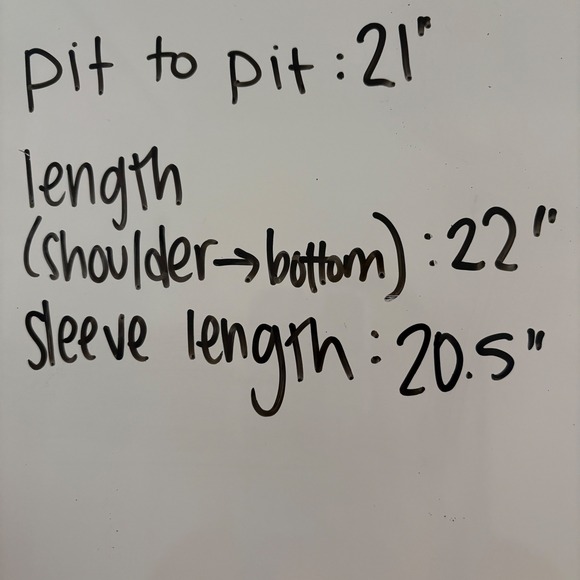 pit to pit : 21"
length
(shoulder→bottom) : 22"
sleeve length : 20.5"